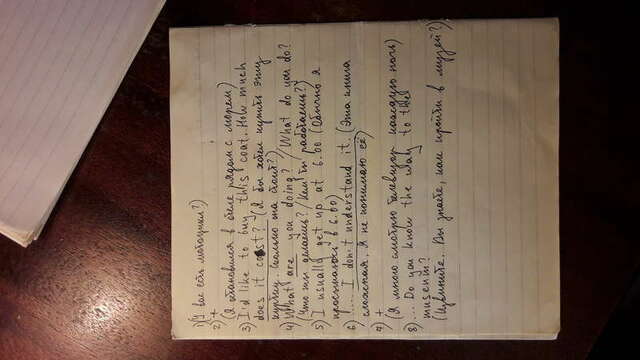 1) У вас есть мотоциклы?)
2) +
(Я остановился в отеле рядом с морем)
3) I'd like to buy this coat. How much
does it cost? (Я бы хотел купить эту
куртку. Сколько она стоит?)
4) What are you doing? / What do you do?
(Что ты делаешь? / Кем ты работаешь?)
5) I usually get up at 6.00 (Обычно я
просыпаюсь в 6.00)
6) ..... I don't understand it. (Эта книга
сложная. Я не понимаю её)
7) +
(Я много смотрю телевизор каждую ночь)
8) .... Do you know the way to the
museum?
(Извините.. Вы знаете, как пройти в музей?)